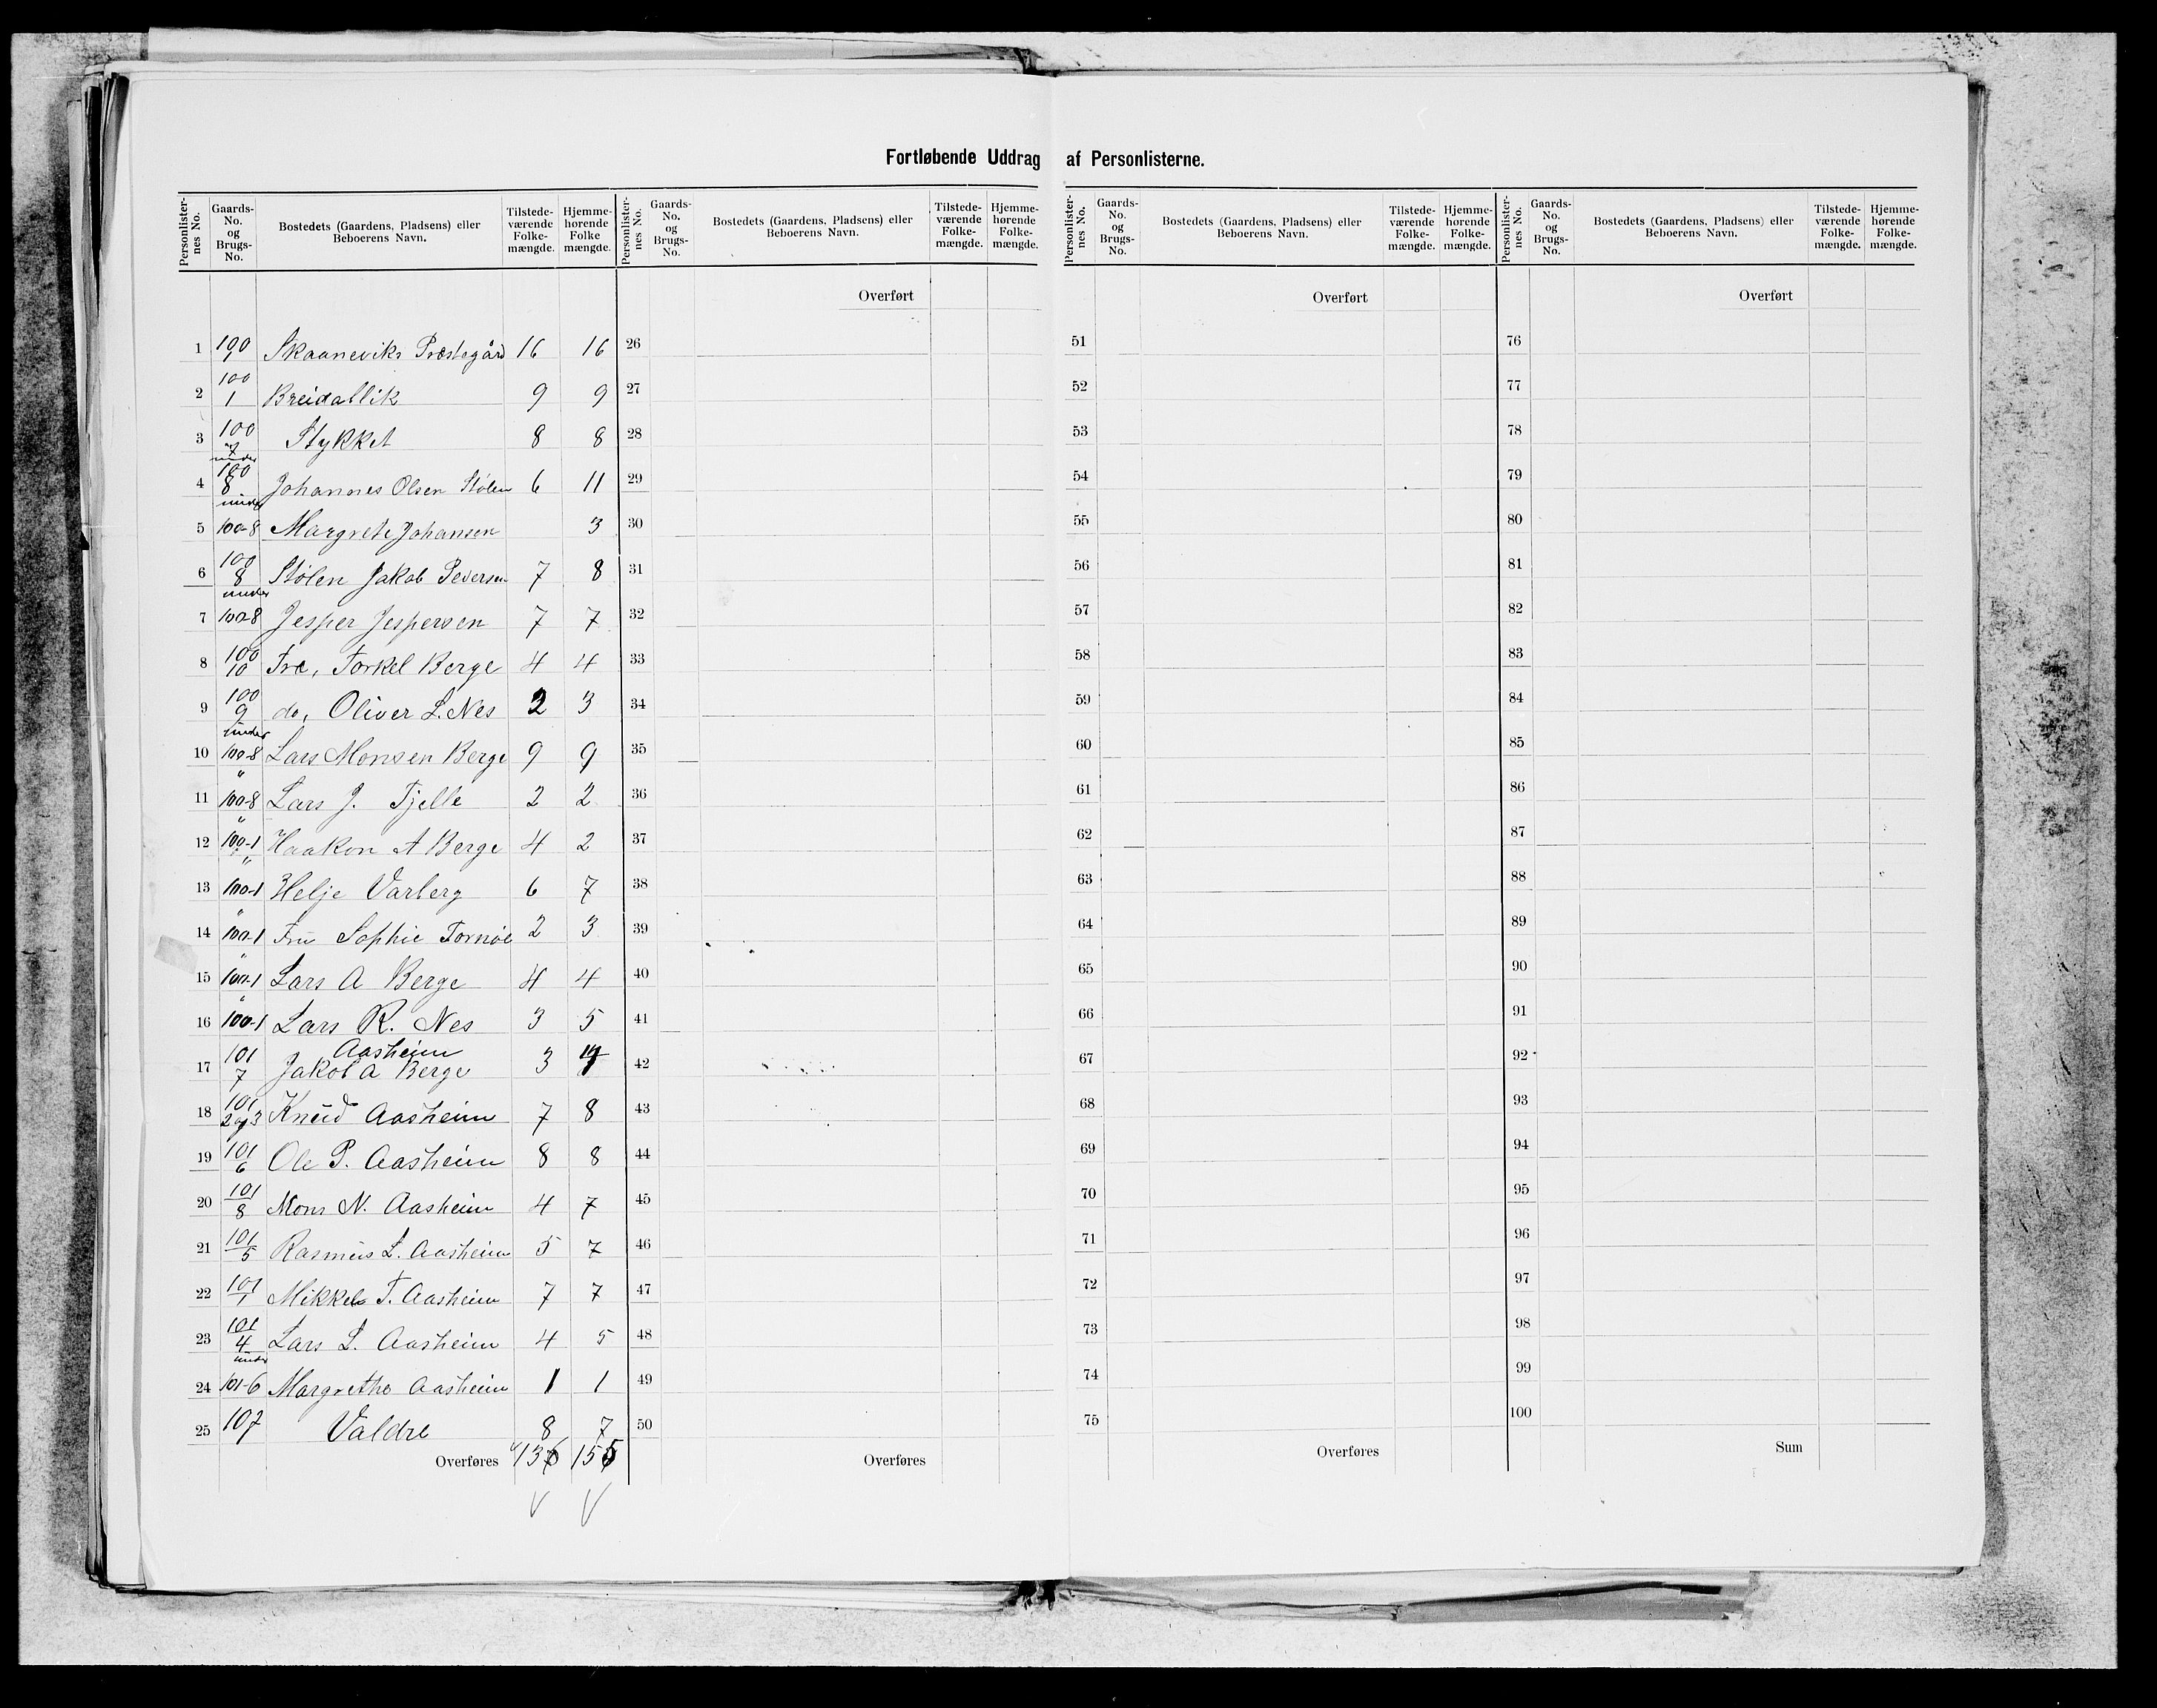 Fortløbende Uddrag af Personlisterne.
Personlister-nes No. Gaards-No. og Brugs-No. Bostedets (Gaardens, Pladsens) eller Beboerens Navn. Tilstede-værende Folke-mængde. Hjemme-hørende Folke mængde.
Personlister-nes No. Gaards-No. og Brugs-No. Bostedets (Gaardens, Pladsens) eller Beboerens Navn. Tilstede-værende Folke-mængde. Hjemme-hørende Folke-mængde.
Personlister-nes No. Gaards-No. og Brugs-No. Bostedets (Gaardens, Pladsens) eller Beboerens Navn. Tilstede-værende Folke-mængde. Hjemme-hørende Folke-mængde.
Personlister-nes No. Gaards-No. og Brugs-No. Bostedets (Gaardens, Pladsens) eller Beboerens Navn. Tilstede-værende Folke-mængde. Hjemme-hørende Folke-mængde.
1 100 Skaaneviks Prestegård 16 16
2 100 1 Breidablik 9 9
3 100 Stykket 8 8
under
4 100 8 Johannes Olsen Stølen 6 11
under
5 100-8 Margrete Johansen 3
6 100 8 Stølen Jakob Pedersen 7 8
under
7 100-8 Jesper Jespersen 7 7
8 100 10 Torkel Berge 4 4
9 100 9 do, Oliver L. Nes 2 3
under
10 100-8 Lars Monsen Berge 9 9
"
11 100-8 Lars J. Tjelle 2 2
"
12 100-1 Haakon A Berge 4 2
"
13 100-1 Helje Varberg 6 7
"
14 100-1 Fru Sophie Tornøe 2 3
"
15 100-1 Lars A Berge 4 4
"
16 100-1 Lars R. Nes 3 5
Aasheim
17 101 7 Jakob A Berge 3
18 101 2 og 3 Knud Aasheim 7 8
19 101 6 Ole P. Aasheim 8 8
20 101 8 Mons N. Aasheim 4 7
21 101 5 Rasmus L. Aasheim 5 7
22 101 1 Mikkel T. Aasheim 7 7
23 101 4 Lars L. Aasheim 4 5
under
24 101-6 Margrethe Aasheim 1 1
25 107 Valdre 8 7
Overføres 136 155
Overført
26
27
28
29
30
31
32
33
34
35
36
37
38
39
40
41
42
43
44
45
46
47
48
49
50
Overføres
Overført
51
52
53
54
55
56
57
58
59
60
61
62
63
64
65
66
67
68
69
70
71
72
73
74
75
Overføres
Overført
76
77
78
79
80
81
82
83
84
85
86
87
88
89
90
91
92
93
94
95
96
97
98
99
100
Sum